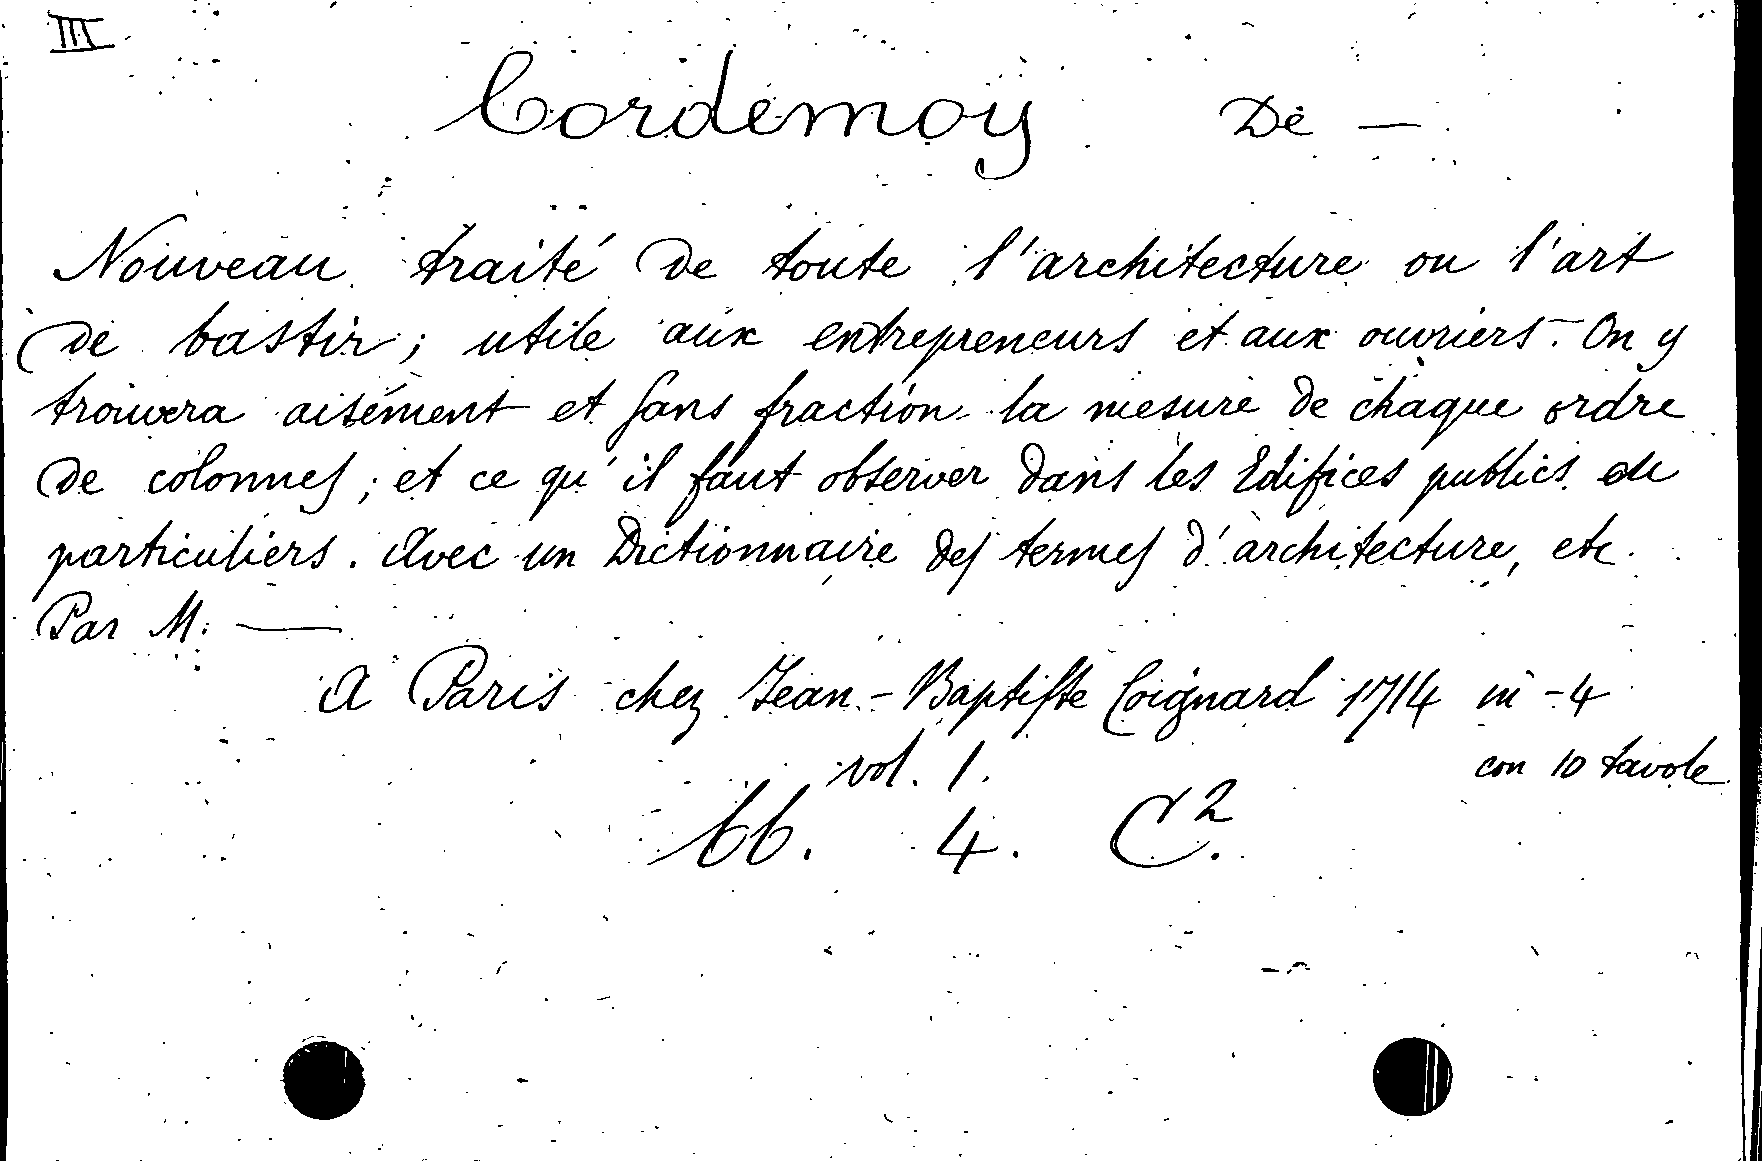 III
Cordemoy De —
Nouveau traité de toute l'architecture ou l'art
de bastir; utile aux entrepreneurs et aux ouvriers. On y
trouvera aisément et sans fraction la mesure de chaque ordre
de colonnes; et ce qu'il faut observer dans les Edifices publics ou
particuliers. Avec un Dictionnaire des termes d'architecture, etc.
Par M. —
A Paris chez Jean-Baptiste Coignard 1714 in-4
vol. 1. con 10 tavole
bb. 4. C².